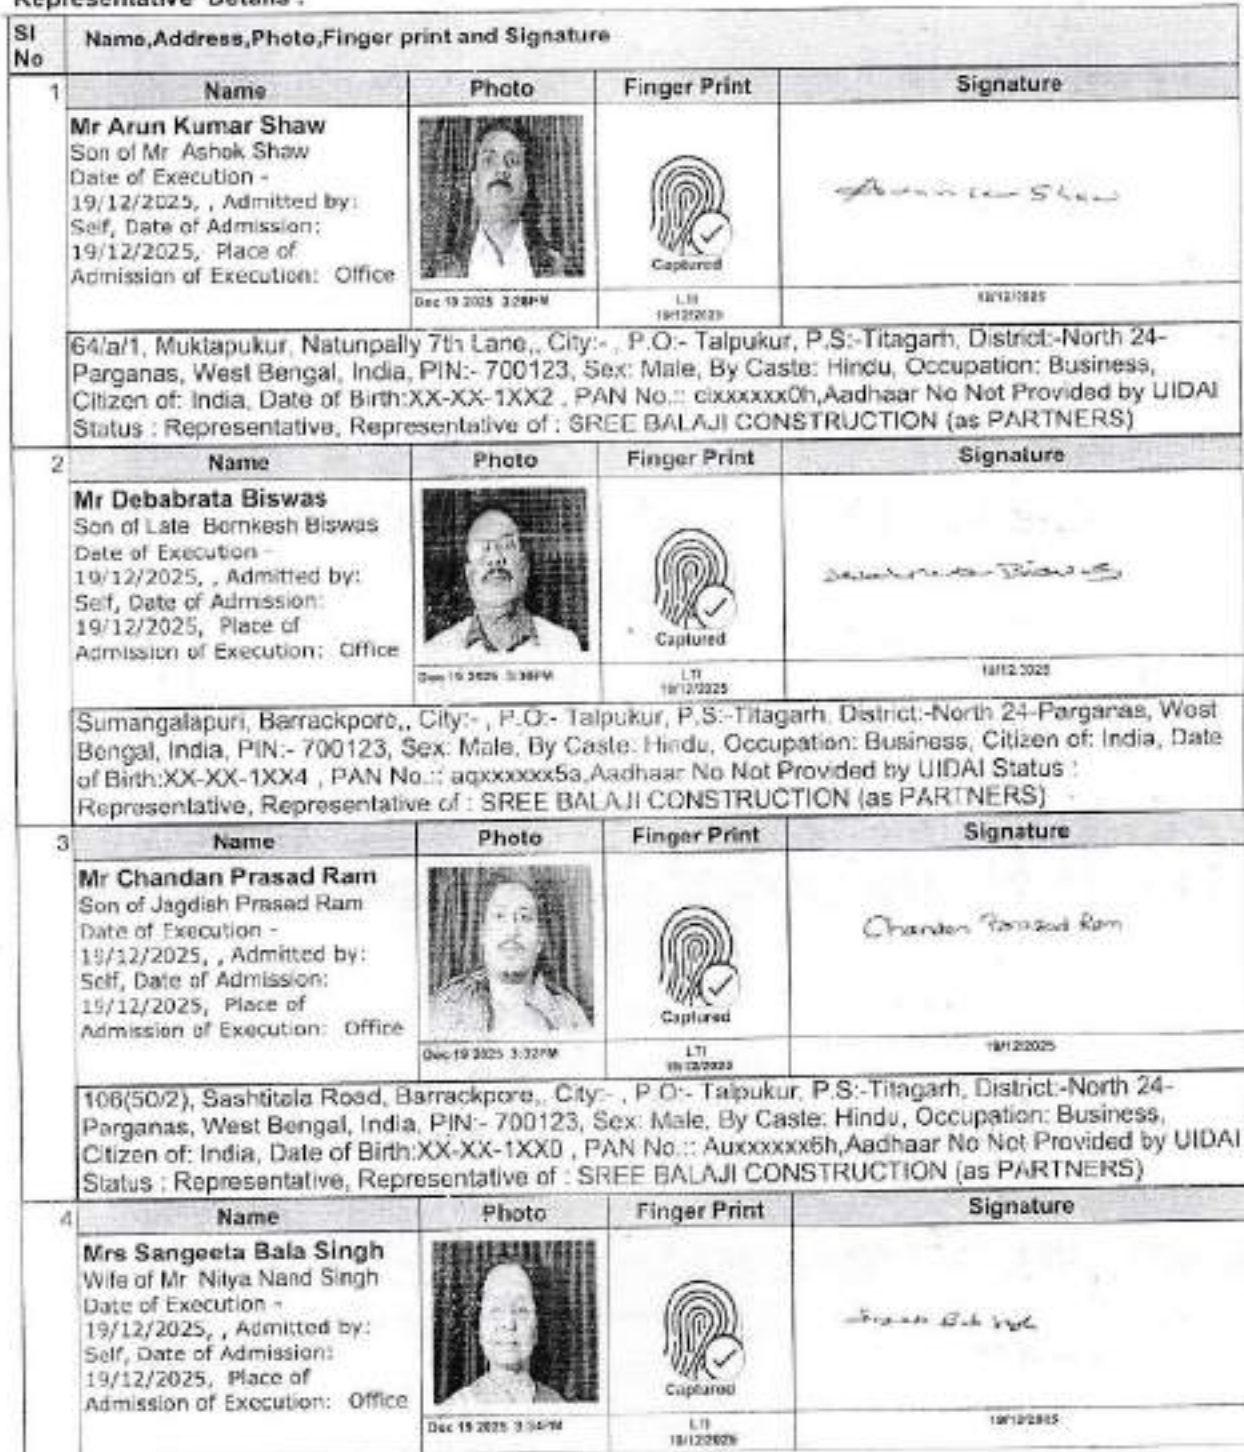 Representative Details :
Sl No
Name,Address,Photo,Finger print and Signature
1
Name
Photo
Finger Print
Signature
Mr Arun Kumar Shaw
Son of Mr Ashok Shaw
Date of Execution -
19/12/2025, , Admitted by:
Self, Date of Admission:
19/12/2025, Place of
Admission of Execution: Office
Captured
Shaw
Dec 19 2025 3:28PM
LTI
19/12/2025
19/12/2025
64/a/1, Muktapukur, Natunpally 7th Lane,, City:- , P.O:- Talpukur, P.S:-Titagarh, District:-North 24-
Parganas, West Bengal, India, PIN:- 700123, Sex: Male, By Caste: Hindu, Occupation: Business,
Citizen of: India, Date of Birth:XX-XX-1XX2 , PAN No.:: cixxxxxx0h,Aadhaar No Not Provided by UIDAI
Status : Representative, Representative of : SREE BALAJI CONSTRUCTION (as PARTNERS)
2
Name
Photo
Finger Print
Signature
Mr Debabrata Biswas
Son of Late Bomkesh Biswas
Date of Execution -
19/12/2025, , Admitted by:
Self, Date of Admission:
19/12/2025, Place of
Admission of Execution: Office
Captured
Biswas
Dec 19 2025 3:30PM
LTI
19/12/2025
19/12/2025
Sumangalapuri, Barrackpore,, City:- , P.O:- Talpukur, P.S:-Titagarh, District:-North 24-Parganas, West
Bengal, India, PIN:- 700123, Sex: Male, By Caste: Hindu, Occupation: Business, Citizen of: India, Date
of Birth:XX-XX-1XX4 , PAN No.:: aqxxxxxx5a,Aadhaar No Not Provided by UIDAI Status :
Representative, Representative of : SREE BALAJI CONSTRUCTION (as PARTNERS)
3
Name
Photo
Finger Print
Signature
Mr Chandan Prasad Ram
Son of Jagdish Prasad Ram
Date of Execution -
19/12/2025, , Admitted by:
Self, Date of Admission:
19/12/2025, Place of
Admission of Execution: Office
Captured
Chandan Prasad Ram
Dec 19 2025 3:32PM
LTI
19/12/2025
19/12/2025
106(50/2), Sashtitala Road, Barrackpore,, City:- , P.O:- Talpukur, P.S:-Titagarh, District:-North 24-
Parganas, West Bengal, India, PIN:- 700123, Sex: Male, By Caste: Hindu, Occupation: Business,
Citizen of: India, Date of Birth:XX-XX-1XX0 , PAN No.:: Auxxxxxx6h,Aadhaar No Not Provided by UIDAI
Status : Representative, Representative of : SREE BALAJI CONSTRUCTION (as PARTNERS)
4
Name
Photo
Finger Print
Signature
Mrs Sangeeta Bala Singh
Wife of Mr Nitya Nand Singh
Date of Execution -
19/12/2025, , Admitted by:
Self, Date of Admission:
19/12/2025, Place of
Admission of Execution: Office
Captured
Dec 19 2025 3:34PM
LTI
19/12/2025
19/12/2025